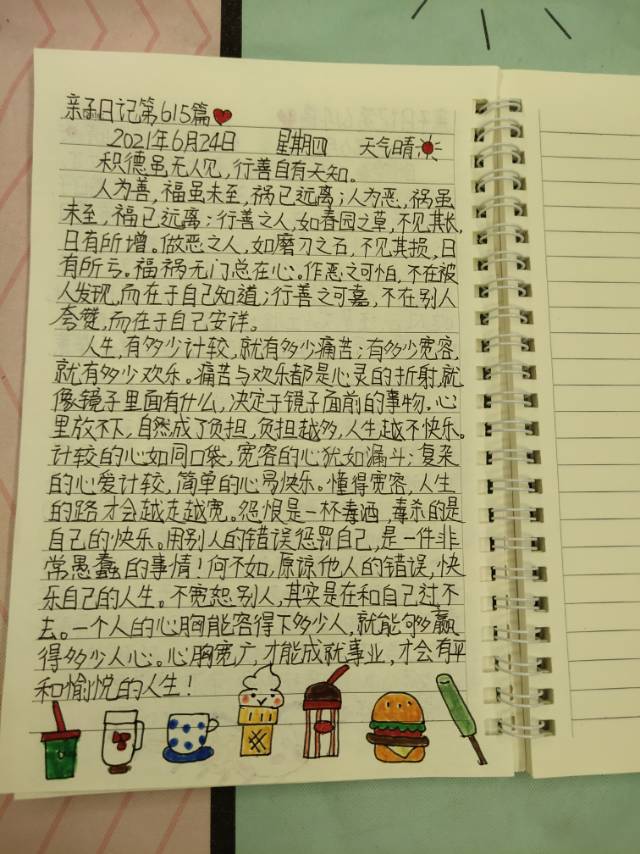 亲子日记第615篇
2021年6月24日 星期四 天气晴
积德虽无人见,行善自有天知。
人为善,福虽未至,祸已远离;人为恶,祸虽
未至,福已远离;行善之人,如春园之草,不见其长,
日有所增。做恶之人,如磨刀之石,不见其损,日
有所亏。福祸无门总在心。作恶之可怕,不在被
人发现,而在于自己知道;行善之可嘉,不在别人
夸赞,而在于自己安详。
人生,有多少计较,就有多少痛苦;有多少宽容,
就有多少欢乐。痛苦与欢乐都是心灵的折射,就
像镜子里面有什么,决定于镜子面前的事物。心
里放不下,自然成了负担,负担越多,人生越不快乐。
计较的心如同口袋,宽容的心犹如漏斗;复杂
的心爱计较,简单的心易快乐。懂得宽容,人生
的路才会越走越宽。怨恨是一杯毒酒,毒杀的是
自己的快乐。用别人的错误惩罚自己,是一件非
常愚蠢的事情!何不如,原谅他人的错误,快
乐自己的人生。不宽恕别人,其实是在和自己过不
去。一个人的心胸能容得下多少人,就能够赢
得多少人心。心胸宽广,才能成就事业,才会有平
和愉悦的人生!